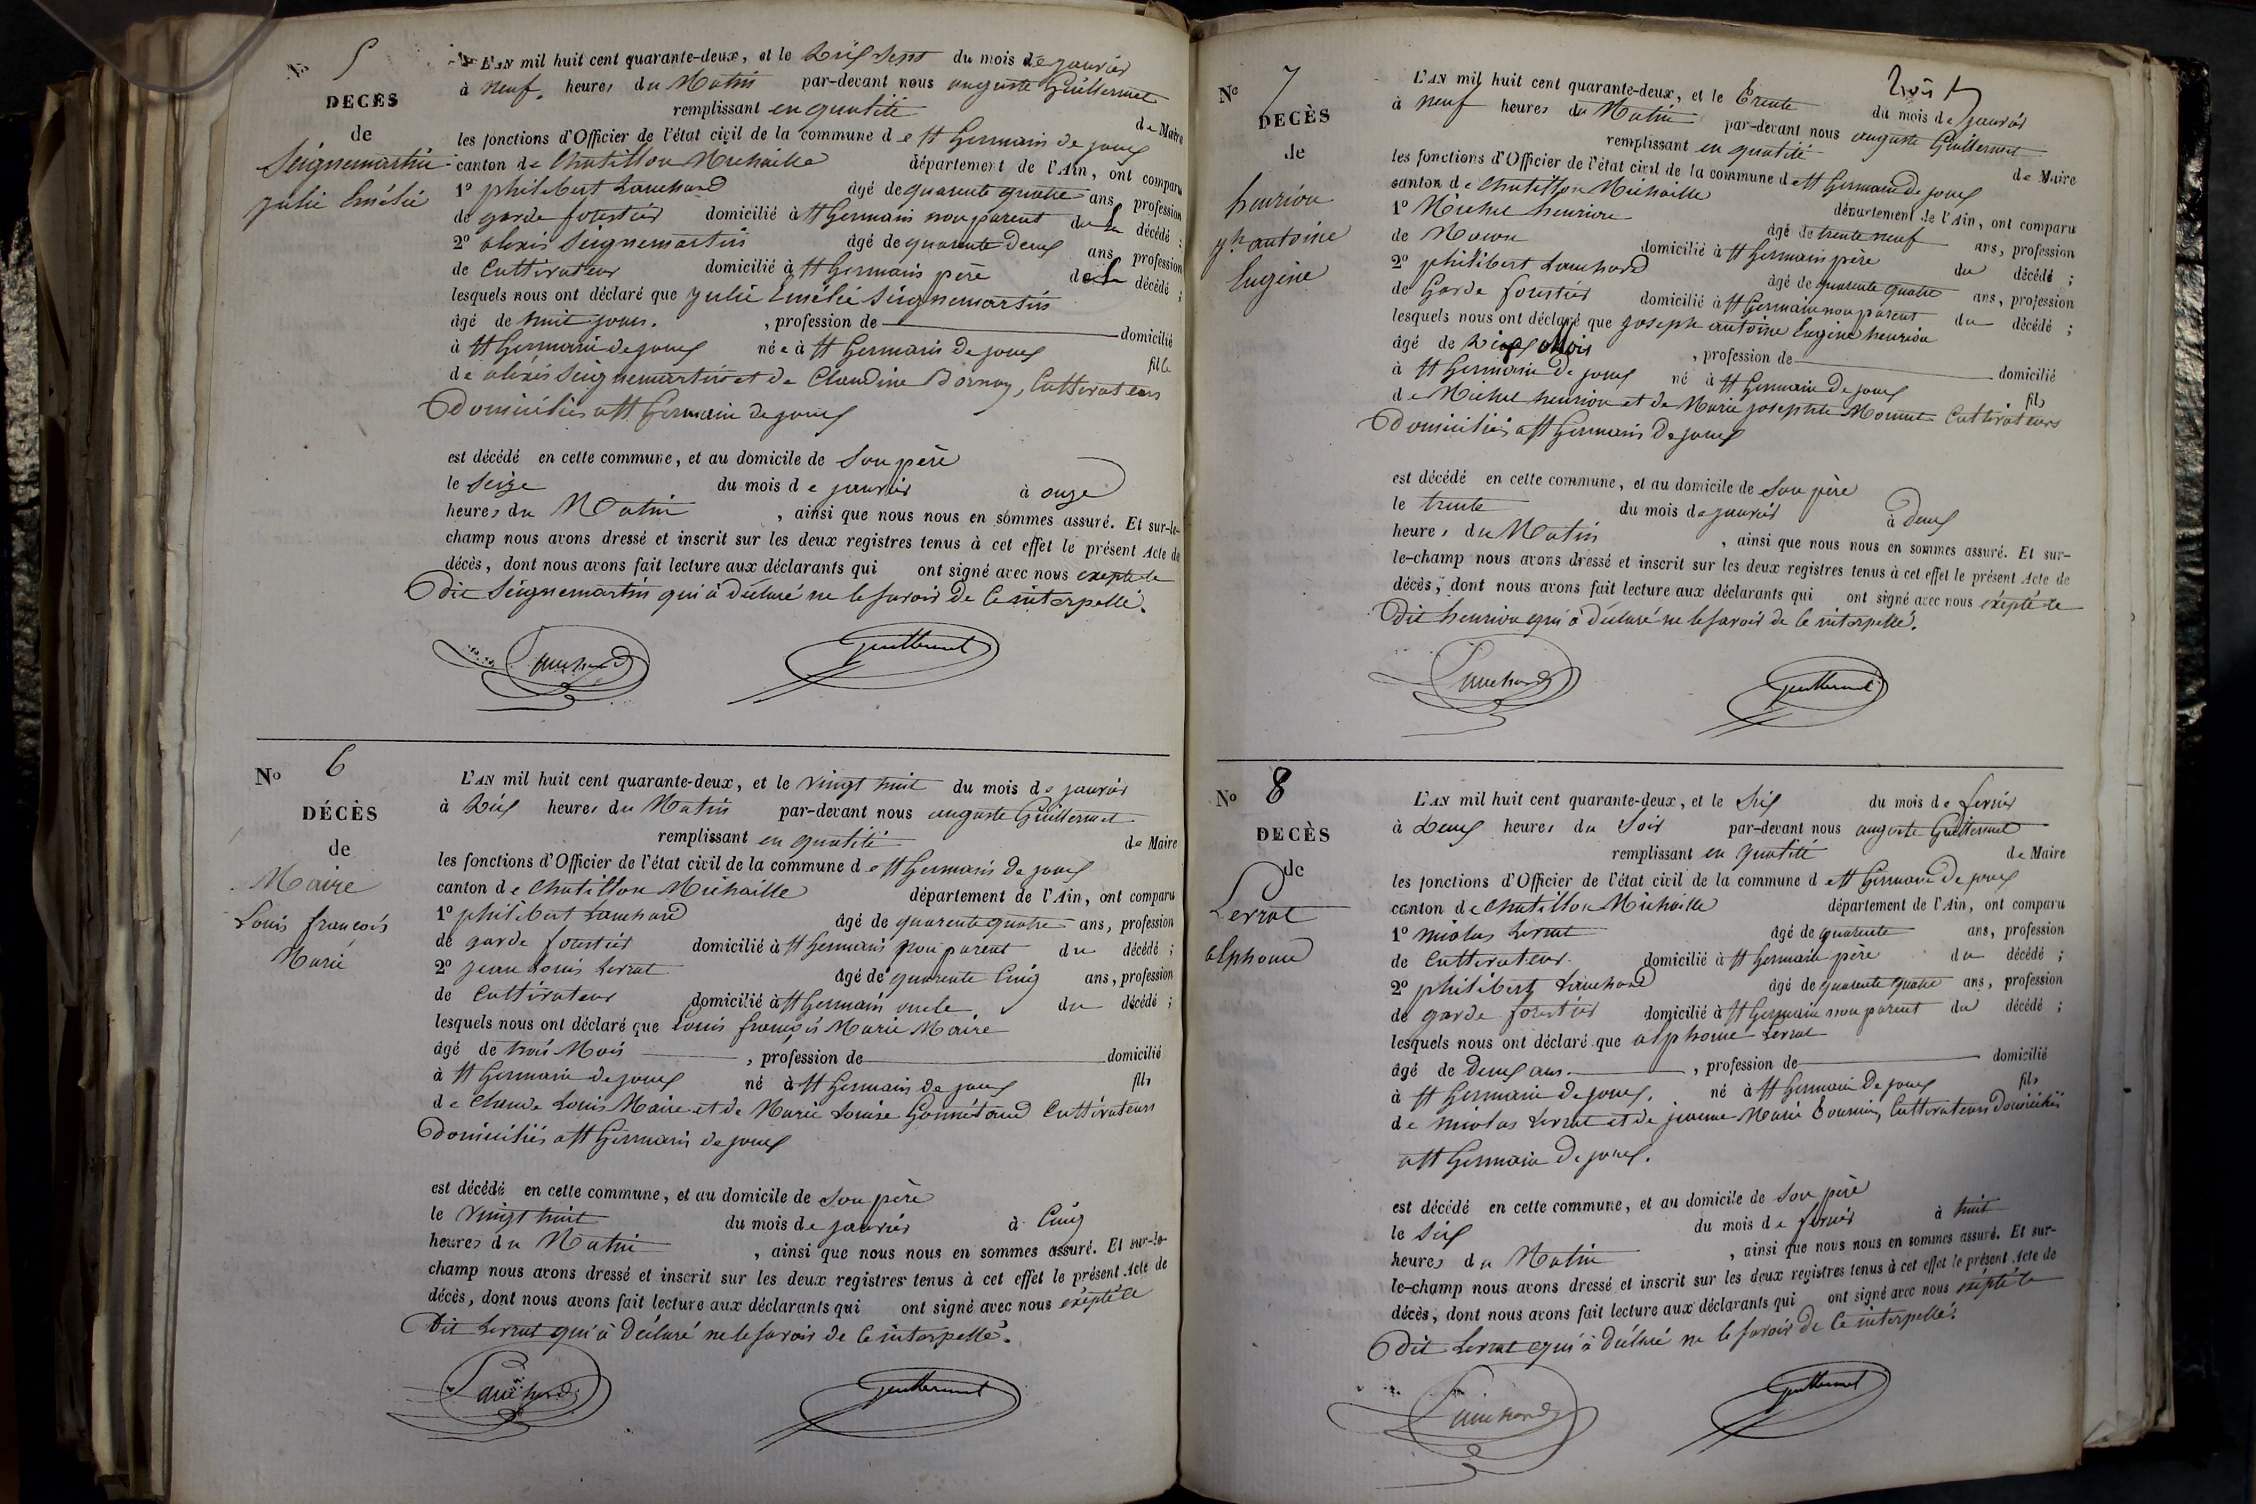 No 5
DECES
de
Seignemartin
Julie Emélie
L'AN mil huit cent quarante-deux, et le Dix sept du mois de janvier
à neuf heures du Matin par-devant nous auguste Guillermet
remplissant en qualité de Maire
les fonctions d'Officier de l'état civil de la commune de St Germain de joux
canton de Chatillon Michaille département de l'Ain, ont comparu
1º philibert Lanchard âgé de quarante quatre ans, profession
de garde forestier domicilié à St Germain non parent du La décédé ;
2º alexis Seignemartin âgé de quarante Deux ans, profession
de Cultivateur domicilié à St Germain père de La décédé ;
lesquels nous ont déclaré que Julie Emélie Seignemartin
âgé de huit jours. , profession de domicilié
à St Germain de joux née à St Germain de joux fille
de alexis Seignemartin et de Claudine Bornay, Cultivateurs
Domiciliés a St Germain de joux
est décédé en cette commune, et au domicile de Son père
le Seize du mois de janvier à onze
heures du Matin , ainsi que nous nous en sommes assuré. Et sur-le-
champ nous avons dressé et inscrit sur les deux registres tenus à cet effet le présent Acte de
décès, dont nous avons fait lecture aux déclarants qui ont signé avec nous exepté le
Dit Seignemartin qui à déclaré ne le savoir de Ce interpellé.
Lanchard Guillermet
No 6
DÉCÈS
de
Maire
Louis françois
Marie
L'AN mil huit cent quarante-deux, et le vingt huit du mois de janvier
à Dix heures du Matin par-devant nous auguste Guillermet
remplissant en qualité de Maire
les fonctions d'Officier de l'état civil de la commune de St Germain de joux
canton de Chatillon Michaille département de l'Ain, ont comparu
1º philibert Lanchard âgé de quarante quatre ans, profession
de garde forestier domicilié à St Germain non parent du décédé ;
2º jean Louis Levrat âgé de quarante Cinq ans, profession
de Cultivateur domicilié à St Germain oncle du décédé ;
lesquels nous ont déclaré que Louis françois Marie Maire
âgé de trois Mois , profession de domicilié
à St Germain de joux né à St Germain de joux fils
de Claude Louis Maire et de Marie Louise Cultivateurs
Domiciliés a St Germain de joux
est décédé en cette commune, et au domicile de Son père
le vingt huit du mois de janvier à Cinq
heures du Matin , ainsi que nous nous en sommes assuré. Et sur-le-
champ nous avons dressé et inscrit sur les deux registres tenus à cet effet le présent Acte de
décès, dont nous avons fait lecture aux déclarants qui ont signé avec nous éxépté le
Dit Levrat qui à Déclaré ne le savoir de Ce interpellé.
Lanchard Guillermet
trois
No 7
DECÈS
de
henrion
jh antoine
Eugène
L'AN mil huit cent quarante-deux, et le Trente du mois de janvier
à neuf heures du Matin par-devant nous auguste Guillermet
remplissant en qualité de Maire
les fonctions d'Officier de l'état civil de la commune de St Germain de joux
canton de Chatillon Michaille département de l'Ain, ont comparu
1º Michel henrion âgé de trente neuf ans, profession
de Maçon domicilié à St Germain père du décédé ;
2º philibert Lanchard âgé de quarante quatre ans, profession
de Garde forestier domicilié à St Germain non parent du décédé ;
lesquels nous ont déclaré que joseph antoine Eugène henrion
âgé de Dix Mois , profession de domicilié
à St Germain de joux né à St Germain de joux fils
de Michel henrion et de Marie josephte Monnet Cultivateurs
Domiciliés a St Germain de joux
est décédé en cette commune, et au domicile de Son père
le trente du mois de janvier à Deux
heures du Matin , ainsi que nous nous en sommes assuré. Et sur-
le-champ nous avons dressé et inscrit sur les deux registres tenus à cet effet le présent Acte de
décès, dont nous avons fait lecture aux déclarants qui ont signé avec nous éxépté le
Dit henrion qui à déclaré ne le savoir de Ce interpellé.
Lanchard Guillermet
No 8
DECÈS
de
Levrat
alphonse
L'AN mil huit cent quarante-deux, et le Six du mois de fevrier
à Deux heures du Soir par-devant nous auguste Guillermet
remplissant en qualité de Maire
les fonctions d'Officier de l'état civil de la commune de St Germain de joux
canton de Chatillon Michaille département de l'Ain, ont comparu
1º nicolas Levrat âgé de quarante ans, profession
de Cultivateur. domicilié à St Germain père du décédé ;
2º philibert Lanchard âgé de quarante quatre ans, profession
de garde forestier domicilié à St Germain non parent du décédé ;
lesquels nous ont déclaré que alphonse Levrat
âgé de Deux ans. , profession de domicilié
à St Germain de joux, né à St Germain de joux fils
de nicolas Levrat et de jeanne Marie Tournier, Cultivateurs Domiciliés
a St Germain de joux.
est décédé en cette commune, et au domicile de Son père
le Six du mois de fevrier à huit
heures du Matin , ainsi que nous nous en sommes assuré. Et sur-
le-champ nous avons dressé et inscrit sur les deux registres tenus à cet effet le présent Acte de
décès, dont nous avons fait lecture aux déclarants qui ont signé avec nous éxépté le
Dit Levrat qui à déclaré ne le savoir de Ce interpellé.
Lanchard Guillermet